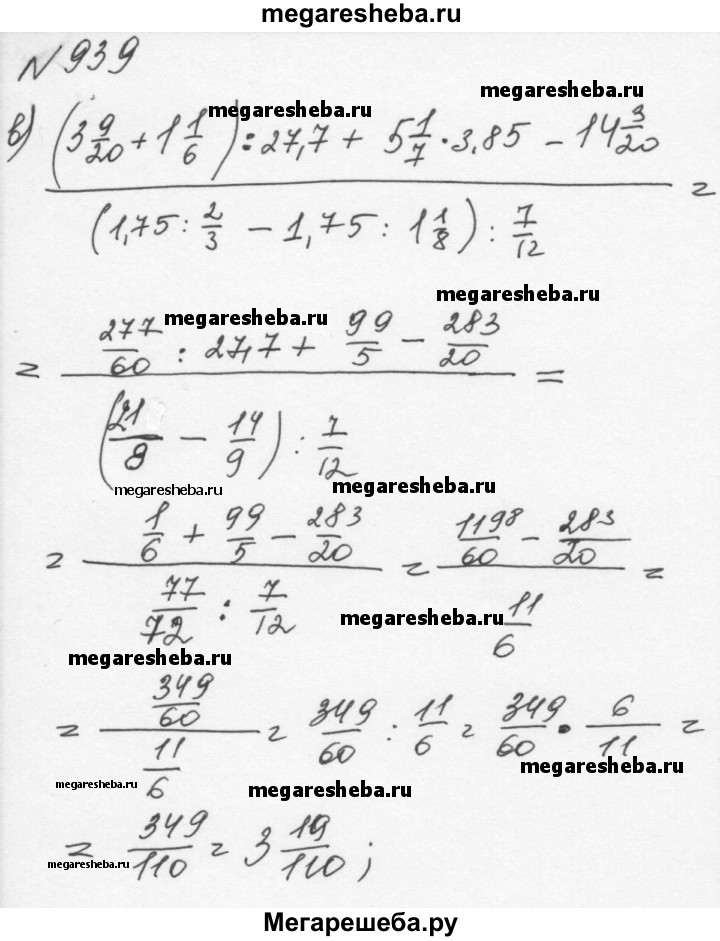 megaresheba.ru
N 939
megaresheba.ru
megaresheba.ru
в) (3 9/20 + 1 1/6) : 27,7 + 5 1/7 · 3,85 - 14 3/20 =
(1,75 : 2/3 - 1,75 : 1 1/8) : 7/12
megaresheba.ru
megaresheba.ru
= 277/60 : 27,7 + 99/5 - 283/20 =
(21/8 - 14/9) : 7/12
megaresheba.ru
megaresheba.ru
= 1/6 + 99/5 - 283/20 = 1198/60 - 283/20 =
77/72 : 7/12 11/6
megaresheba.ru
megaresheba.ru
= 349/60 = 349/60 : 11/6 = 349/60 · 6/11 =
11/6
megaresheba.ru
megaresheba.ru
megaresheba.ru
= 349/110 = 3 19/110 ;
megaresheba.ru
megaresheba.ru
Мегарешеба.ру